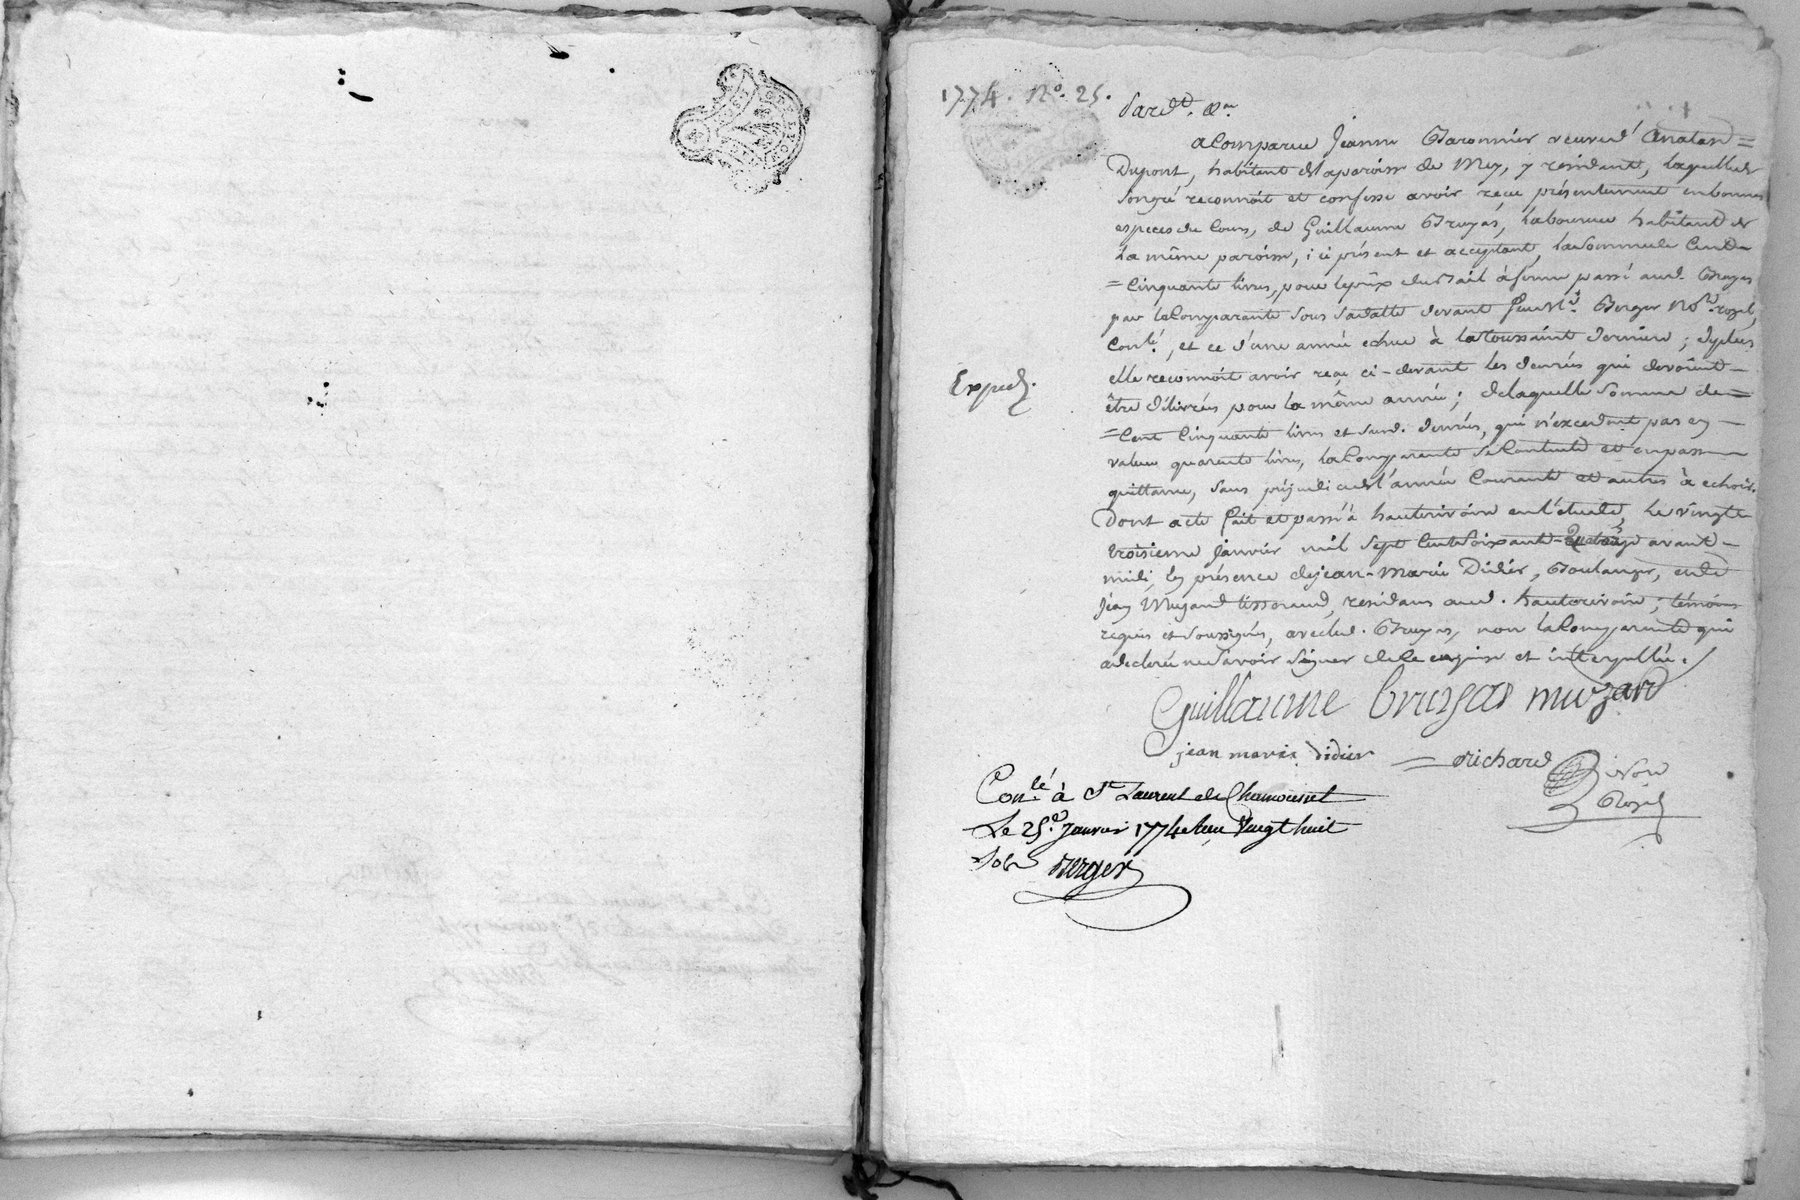 1774. No. 25.
Pard.t &.a
a Comparu Jeanne Baronnier veuve d'
Dupont, habitant de la paroisse de Mey, y residente, laquelle de
son gré reconnoit et confesse avoir reçu présentement en bonnes
especes de Cours, de Guillaume Bruyas, laboureur habitant de
la même paroisse, ici présent et acceptant, la somme de Cent
= Cinquante livres, pour le prix du Bail à ferme passé aud. Bruyas
par la Comparante sous sa datte devant feu M.e Berger No.re royal,
Conlé., et ce d'une année echue à la toussaint derniere; de plus
elle reconnoit avoir reçu ci-devant les denrées qui devoient
être délivrées pour la même année; de laquelle somme de =
= Cent Cinquante livres et surd. denrées, qui n'excedent pas en
valeur quarente livres, la Comparante se Contente et en passe
quittance, sans préjudice de l'année Courante et autres à echoir.
Dont acte fait et passé à hauterivoire en l'étude, le vingt
troisieme janvier mil sept Cent soixante-Quatorze avant-
midi, en présence de jean-Marie Didier, Boulanger, et de
jean Muzard tisserand, residans aud. hauterivoire; témoins
requis et soussignés, avec led. Bruyas, non la Comparante qui
a declaré ne savoir signer de ce enquise et interpellée.
Exped.
Guillaume bruyas muzard
jean marie didier = richard
No.re
Royal
Con.lé à St Laurent de Chamousset
Le 25.e Janvier 1774 Reçu Vingt huit
Sols Berger